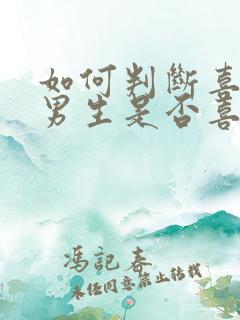 如何判斷喜
男生是否喜
馮記春
未經同意禁止轉載